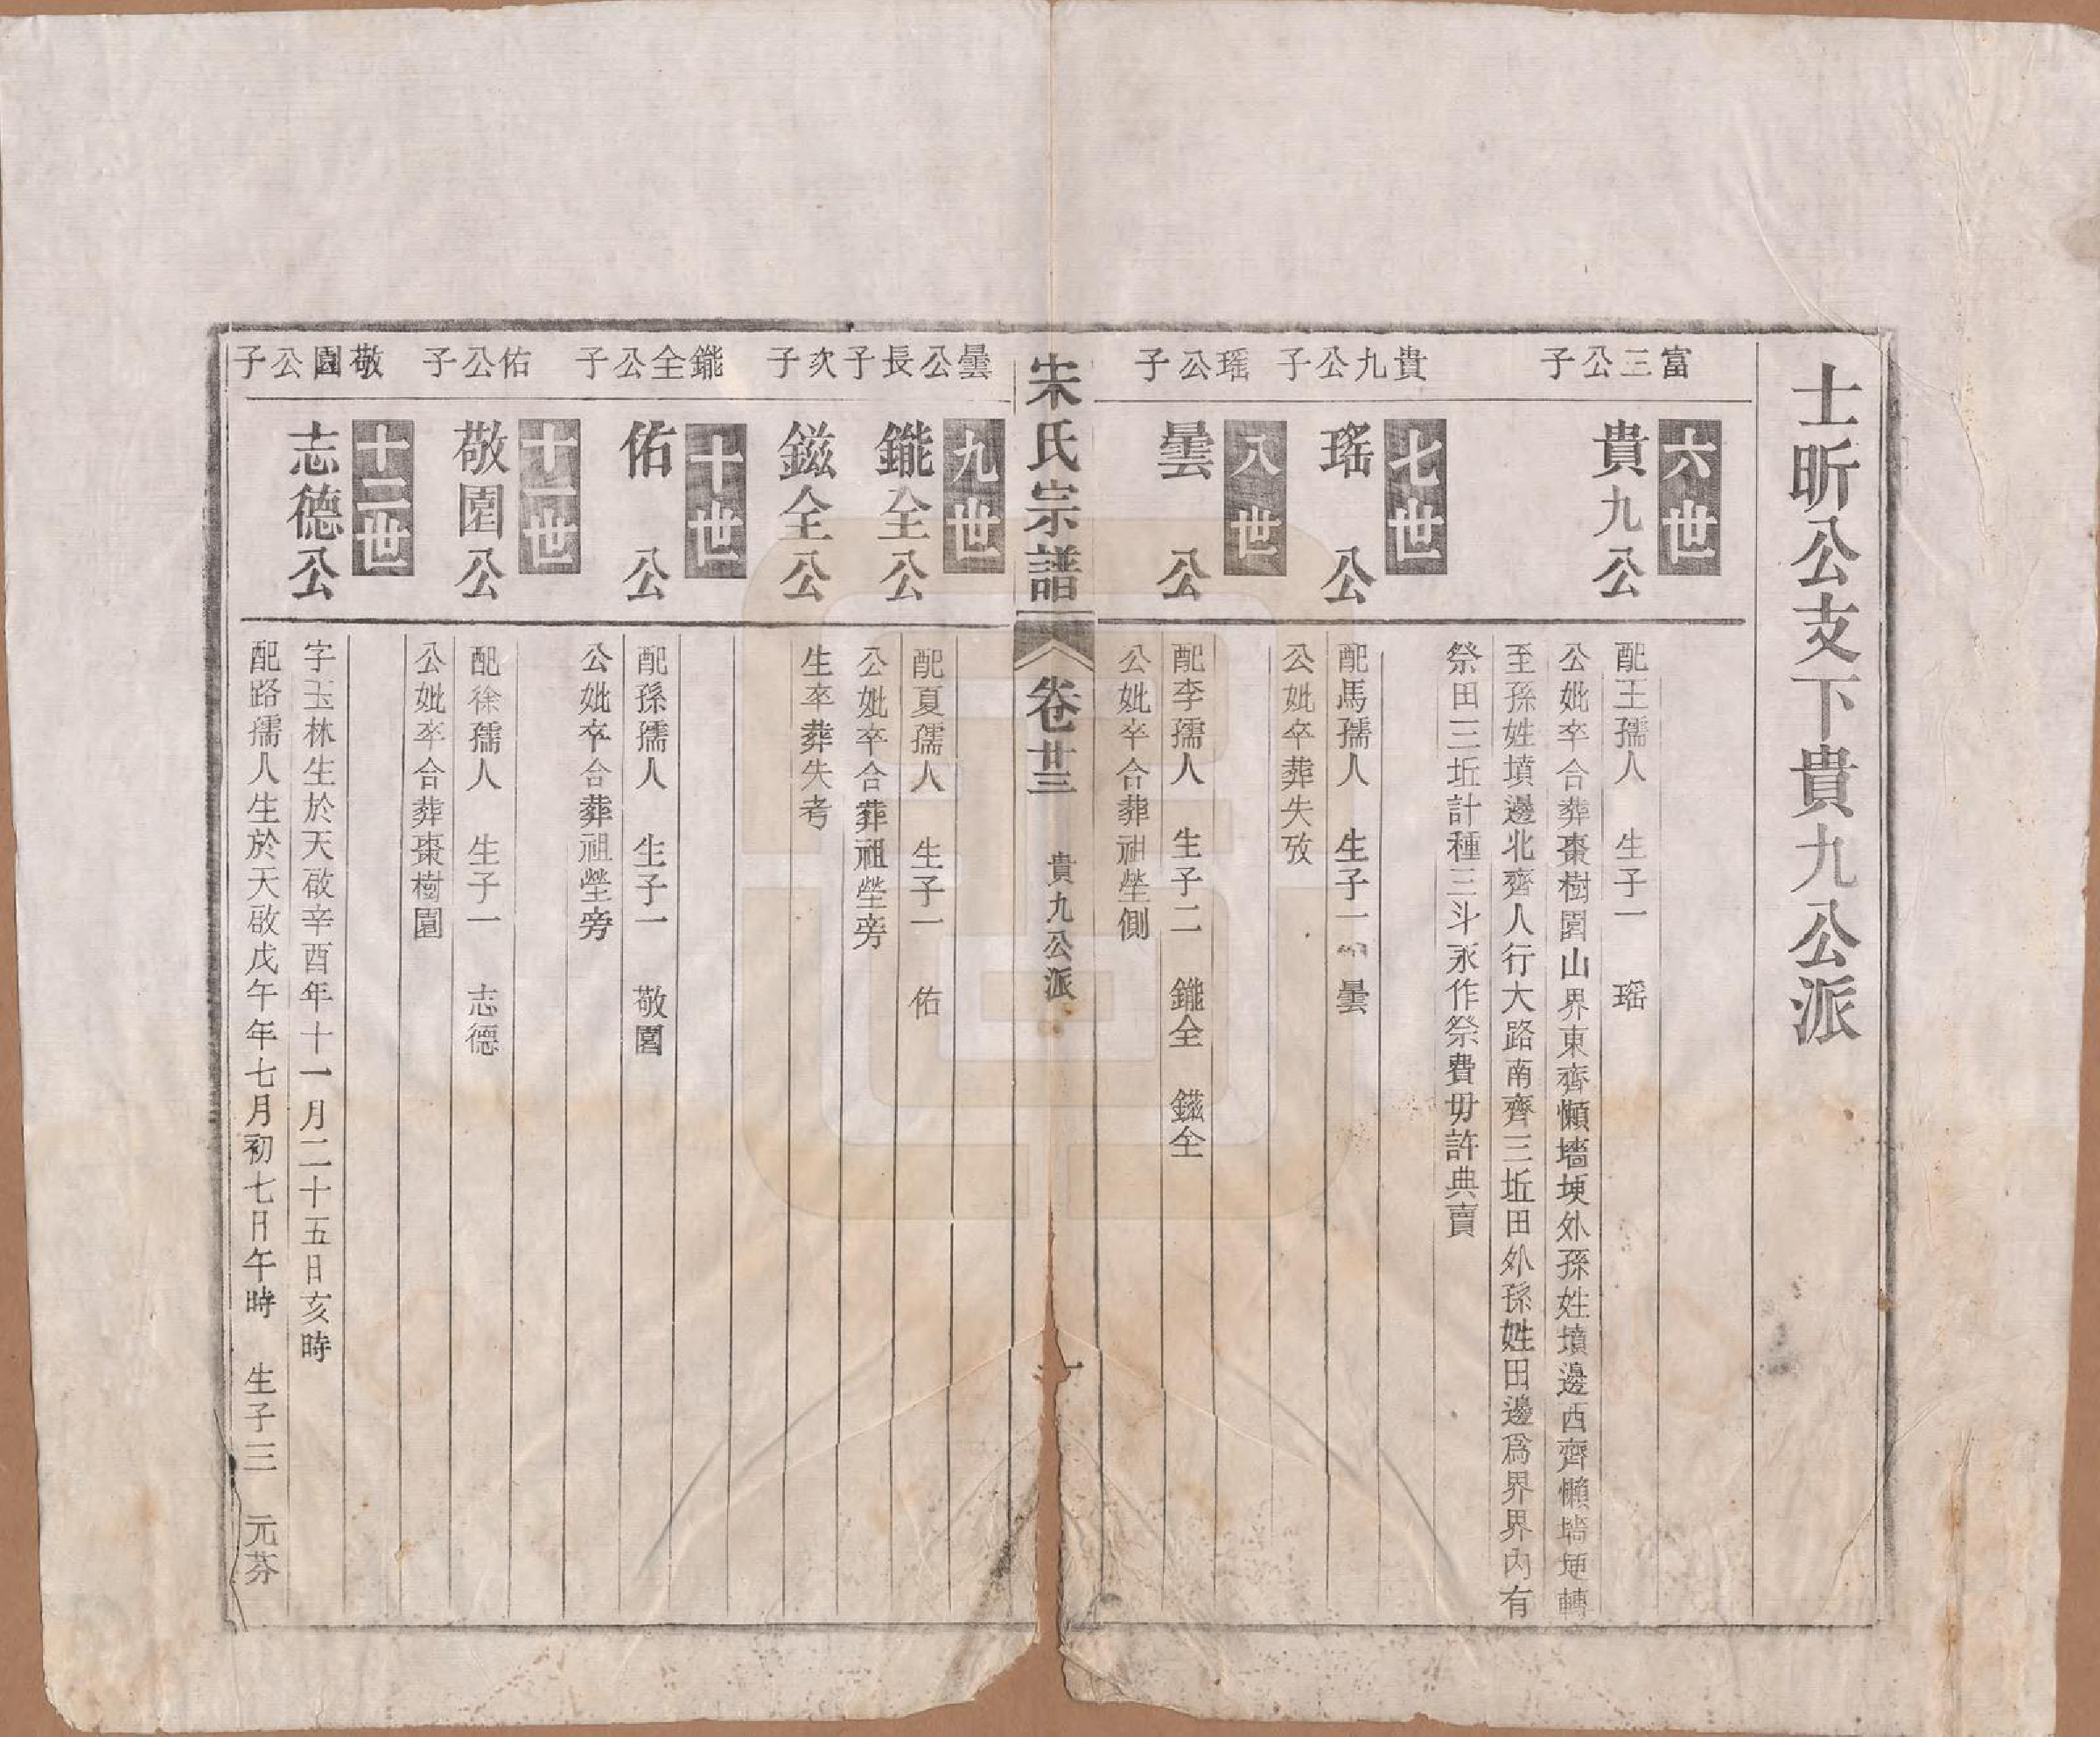 士昕公支下貴九公派
富三公子
六世
貴九公
配王孺人　生子一　瑶
公妣卒合葬棗樹園山界東齊懶墻埂外孫姓墳邊西齊懶墻埂轉
至孫姓墳邊北齊人行大路南齊三坵田外孫姓田邊爲界界内有
祭田三坵計種三斗永作祭費毋許典賣
貴九公子
七世
瑤公
配馬孺人　生子一　曇
公妣卒葬失攷
瑶公子
八世
曇公
配李孺人　生子二　鑨全　鎡全
公妣卒合葬祖塋側
宋氏宗譜
卷廿三
貴九公派
一
曇公長子次子
九世
鑨全公
配夏孺人　生子一　佑
公妣卒合葬祖塋旁
鎡全公
生卒葬失考
鑨全公子
十世
佑公
配孫孺人　生子一　敬園
公妣卒合葬祖塋旁
佑公子
十一世
敬園公
配徐孺人　生子一　志德
公妣卒合葬棗樹園
敬園公子
十二世
志德公
字玉林生於天啟辛酉年十一月二十五日亥時
配路孺人生於天啟戊午年七月初七日午時　生子三　元芬